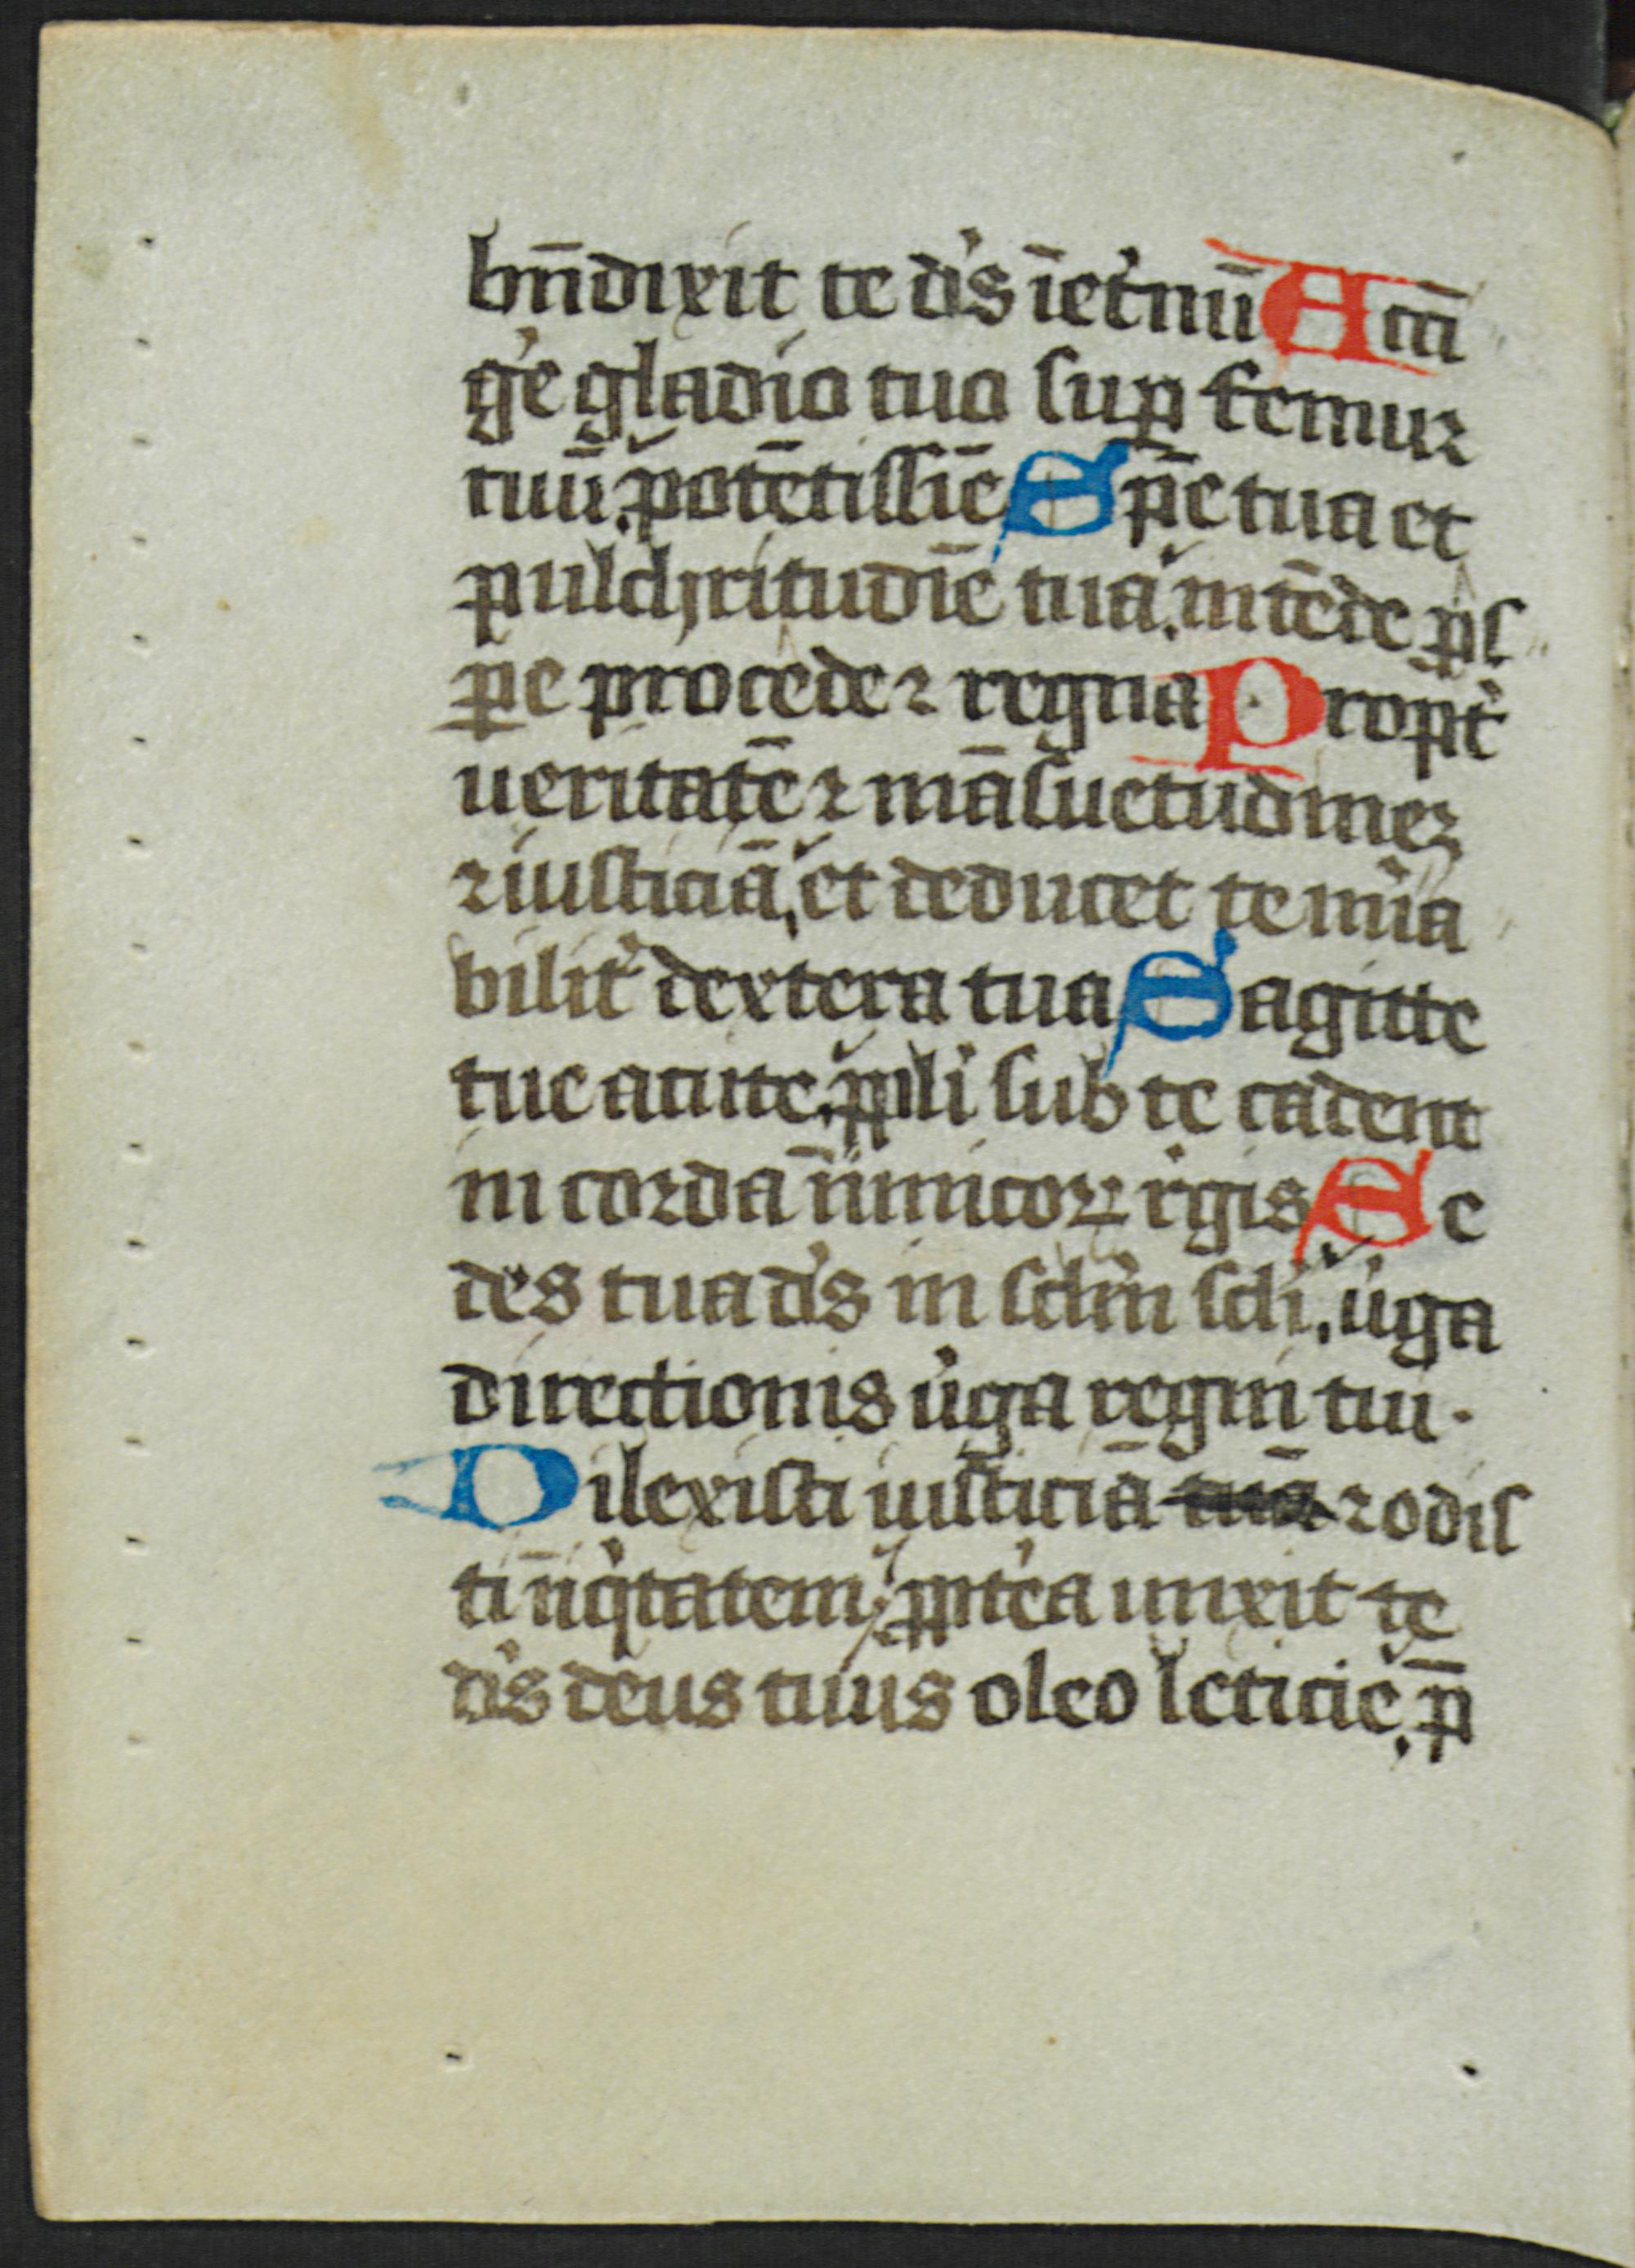 bn̄dixit te d's īet'nū Accī
g'e gladio tuo sup̱ femur
tuū. potētissīe Sp̄e tua et
pulchritudīe tua. intēde p̱s
p̱e procede ⁊ regna Propt'
ueritatē ⁊ māsuetudinez
⁊ iusticiā, et deducet te mi'a
bilit' dextera tua Sagitte
tue acute. pp̱li sub te cadent
in corda īnimicoꝝ r'gis Se
des tua d's in sclm̄ scli, u'ga
directionis u'ga regni tui.
Dilexisti iusticiā ⁊ odis
ti īiq'tatem, pp̱tea unxit te
d's deus tuus oleo leticie. p̄